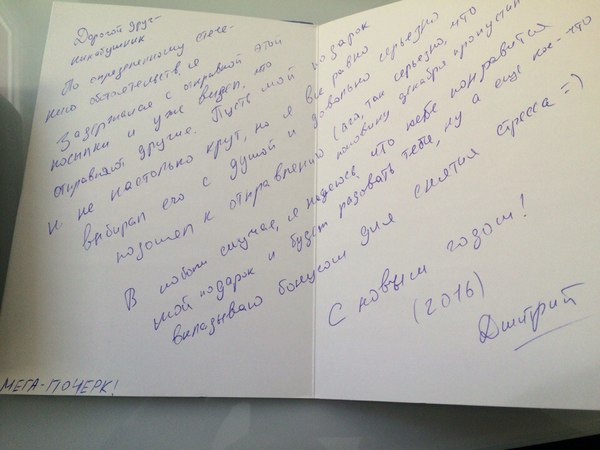 Дорогой друг-
пикабушник
По определенному стече-
нию обстоятельств, я
Задержался с отправкой этой
посылки и уже видел, что
отправляют другие. Пусть мой подарок
и не настолько крут, но я все равно
выбирал его с душой и довольно серьезно
подошел к отправлению (ага, так серьезно, что
половину декабря пропустил
В любом случае, я надеюсь, что тебе понравится
мой подарок и будет радовать тебя, ну а еще кое-что
вкладываю бонусом для снятия стресса =)
С новым годом!
(2016)
Дмитрий
МЕГА-ПОЧЕРК!